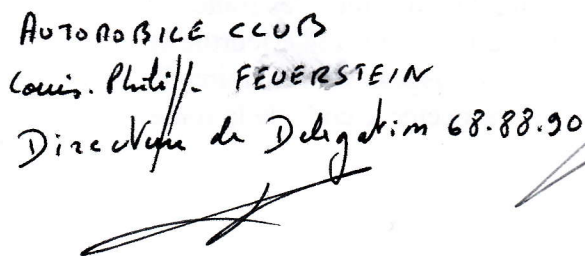 AUTOMOBILE CLUB
Louis-Philipp. FEUERSTEIN
Directeur de Delegation 68.88.90